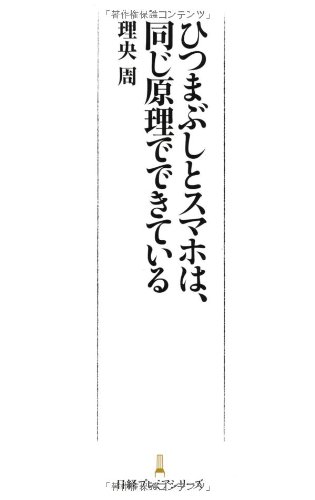 「著作権保護コンテンツ」
ひつまぶしとスマホは、
同じ原理でできている
理央 周
日経プレミアシリーズ
「著作権保護コンテンツ」